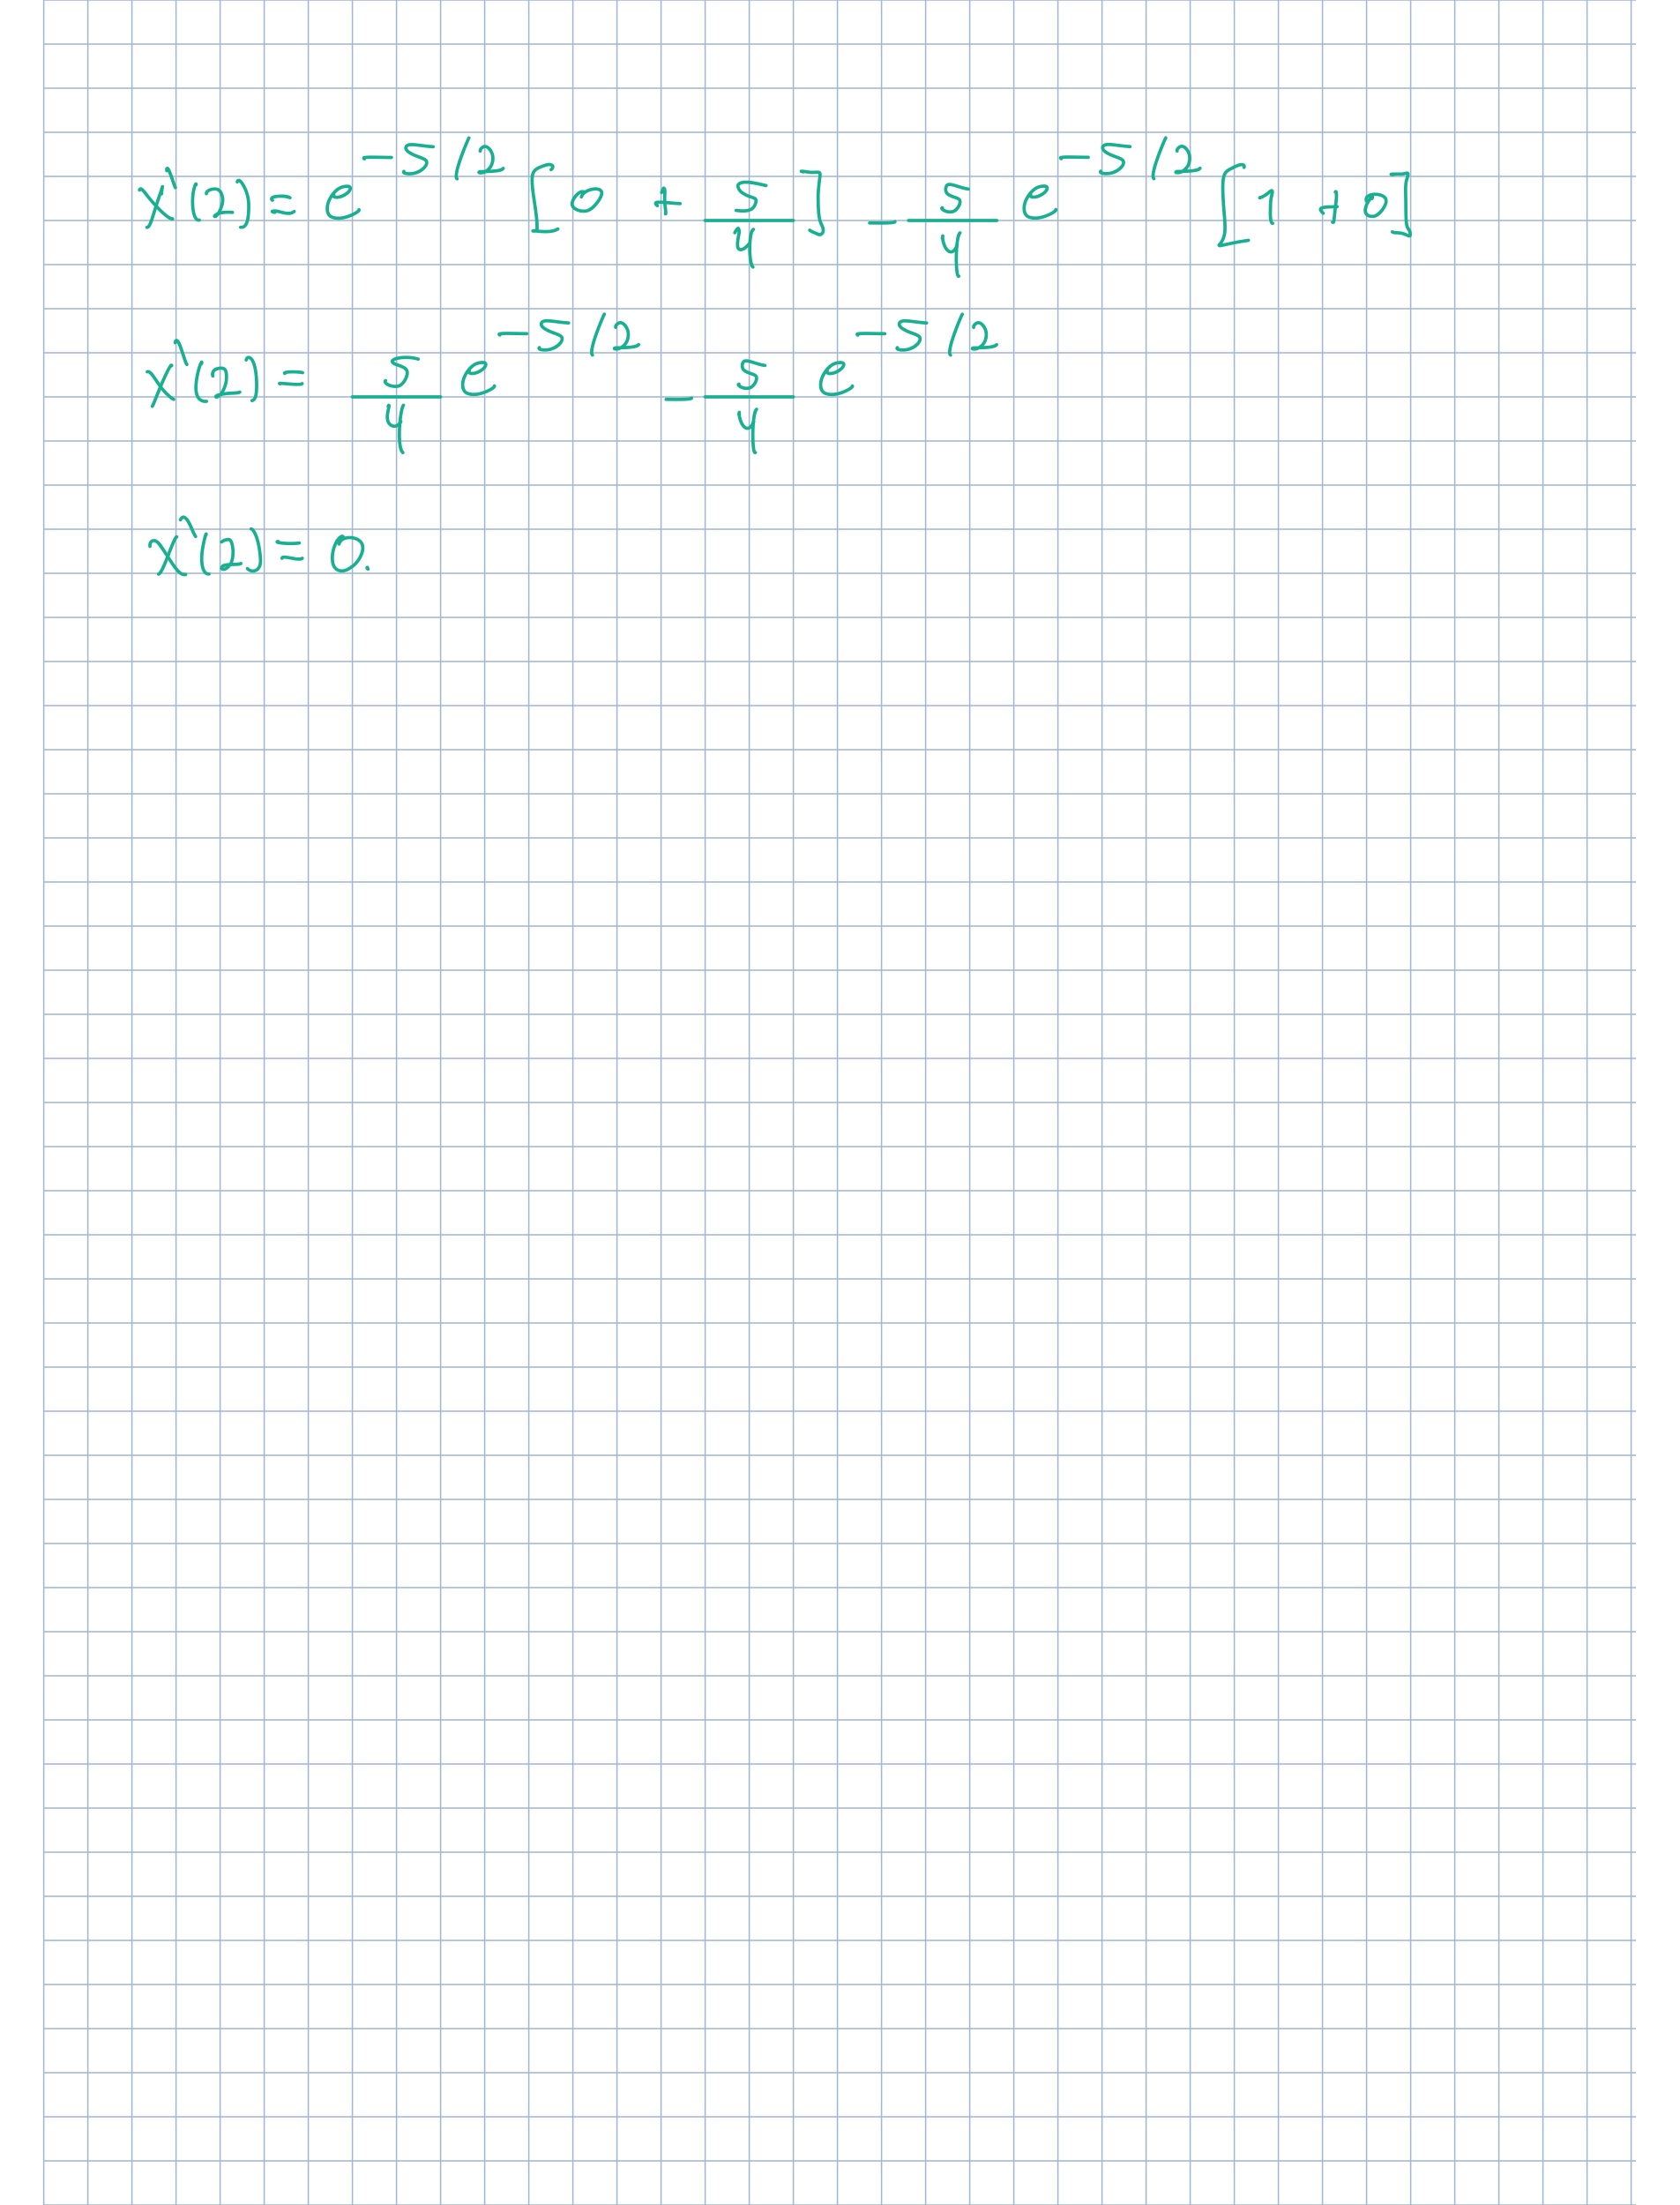 x'(2) = e^{-5/2} [0 + \frac{5}{4}] - \frac{5}{4} e^{-5/2} [1 + 0]
x'(2) = \frac{5}{4} e^{-5/2} - \frac{5}{4} e^{-5/2}
x'(2) = 0.